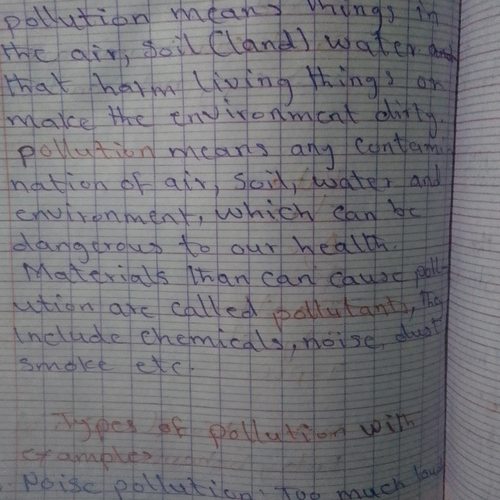 pollution means things in
the air, soil (land) water and
that harm living things or
make the environment dirty.
pollution means any contami
nation of air, soil, water and
environment, which can be
dangerous to our health.
Materials than can cause poll-
ution are called pollutants, They
include chemicals, noise, dust
smoke etc.
Types of pollution with
examples
Noise pollution: Too much loud